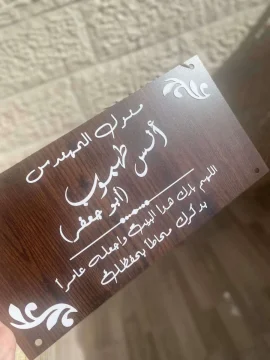 منزل المهندس
أنس طهبوب
(أبو جعفر)
اللهم بارك هذا البيت واجعله عامرا
بذكرك محاطا بحفظك